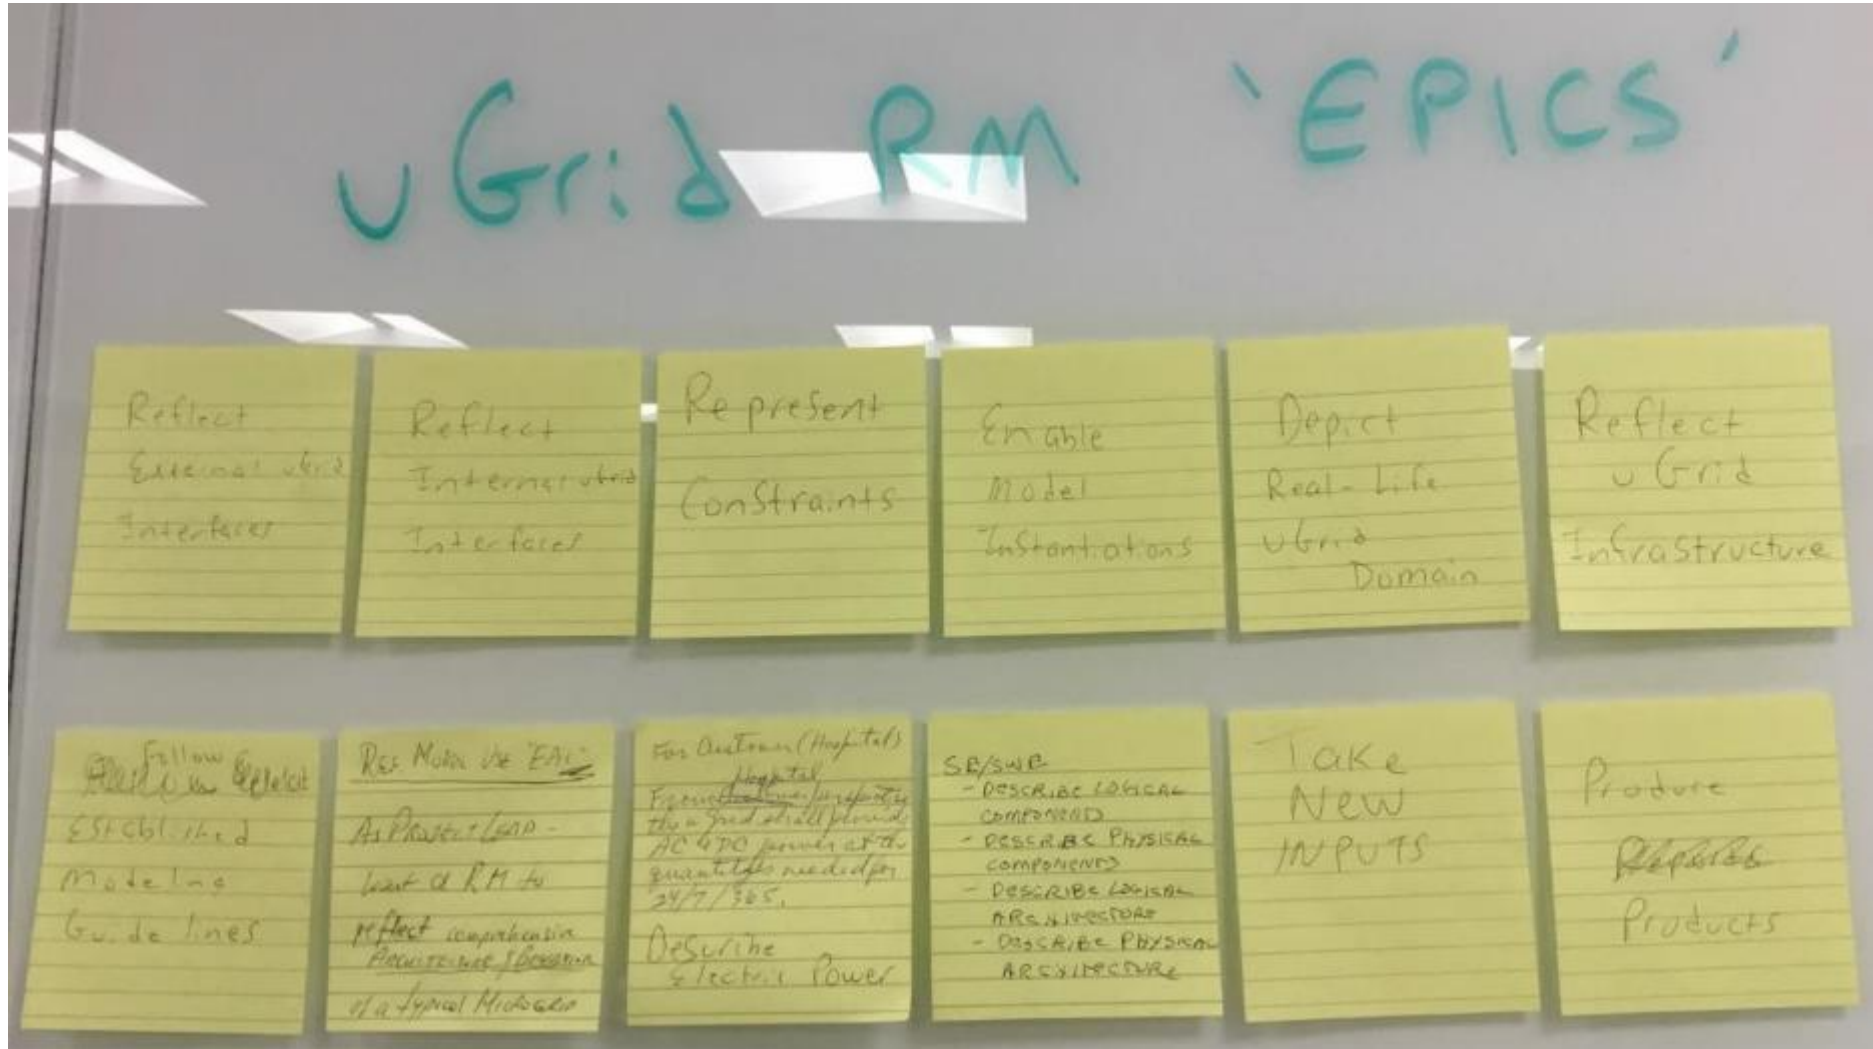 uGrid RM 'EPICS'
Reflect
External uGrid
Interfaces
Reflect
Internal uGrid
Interfaces
Represent
Constraints
Enable
Model
Instantiations
Depict
Real-Life
uGrid
Domain
Reflect
uGrid
Infrastructure
Follow
Established
Modeling
Guidelines
Ref Model Use
As Project Lead -
Want a RM to
reflect comprehensive
Architecture /
of a typical Microgrid
For Customer (Hospital)
Hospital
From perspective
the ugrid shall provide
AC & DC power at the
quantities needed for
24/7/365.
Describe
Electric Power
SE/SWE
- DESCRIBE LOGICAL
COMPONENTS
- DESCRIBE PHYSICAL
COMPONENTS
- DESCRIBE LOGICAL
ARCHITECTURE
- DESCRIBE PHYSICAL
ARCHITECTURE
Take
New
INPUTS
Produce
Products